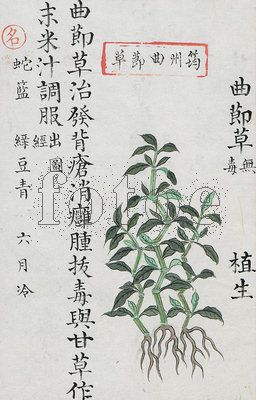 曲節草 無毒
植生
筠州曲節草
曲節草治發背瘡消癰腫拔毒與甘草作
末米汁調服 出圖經
名
蛇藍 綠豆青 六月冷
fotoe